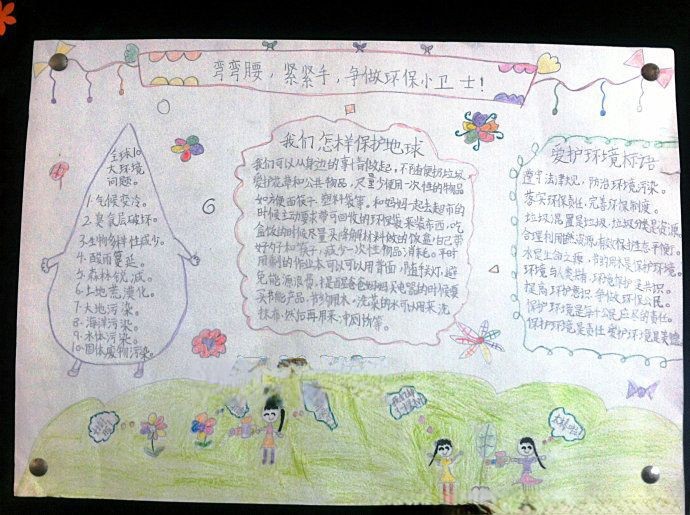 弯弯腰，紧紧手，争做环保小卫士！
全球10
大环境
问题。
1.气候变冷。
2.臭氧层破坏。
3.生物多样性减少。
4.酸雨蔓延。
5.森林锐减。
6.土地荒漠化。
7.大地污染。
8.海洋污染。
9.水体污染。
10.固体废物污染。
我们怎样保护地球
我们可以从身边的事情做起，不随便扔垃圾
爱护花草和公共物品，尽量少使用一次性的物品
如方便面筷子.塑料袋等。和妈妈一起去超市的
时候主动要求带可回收的环保袋来装东西，吃
盒饭的时候尽量买降解材料做的饭盒，自己带
好勺子和筷子，减少一次性物品消耗。平时
用剩的作业本可以可以用背面
免能源浪费，提醒爸爸妈妈买电器的时候要
买节能产品，节约用水，洗菜的水可以用来洗
抹布，然后再用来冲厕所等。
爱护环境标语
遵守法律大见，防治环境污染。
落实环保责任，完善环保制度。
垃圾混置是垃圾，垃圾分类是资源
合理利用自然资源，有效保护生态平衡
水是生命之源，节约用水是保护环境。
环境与人类精，环境保护是共识。
提高环护意识，争做环保公民。
保护环境是每个公民应尽的责任。
保护环境是责任，爱护环境是美德